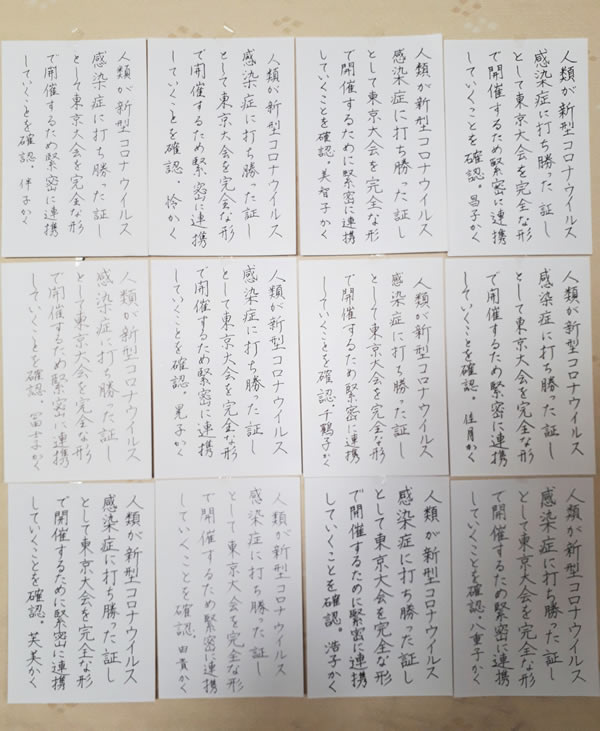 人類が新型コロナウイルス
感染症に打ち勝った証し
として東京大会を完全な形
で開催するため緊密に連携
していくことを確認。昌子かく
人類が新型コロナウイルス
感染症に打ち勝った証し
として東京大会を完全な形
で開催するため緊密に連携
していくことを確認。美智子かく
人類が新型コロナウイルス
感染症に打ち勝った証し
として東京大会を完全な形
で開催するため緊密に連携
していくことを確認。怜かく
人類が新型コロナウイルス
感染症に打ち勝った証し
として東京大会を完全な形
で開催するため緊密に連携
していくことを確認。伴子かく
人類が新型コロナウイルス
感染症に打ち勝った証し
として東京大会を完全な形
で開催するため緊密に連携
していくことを確認。佳月かく
人類が新型コロナウイルス
感染症に打ち勝った証し
として東京大会を完全な形
で開催するため緊密に連携
していくことを確認。千鶴子かく
人類が新型コロナウイルス
感染症に打ち勝った証し
として東京大会を完全な形
で開催するため緊密に連携
していくことを確認。晃子かく
人類が新型コロナウイルス
感染症に打ち勝った証し
として東京大会を完全な形
で開催するため緊密に連携
していくことを確認。冨士子かく
人類が新型コロナウイルス
感染症に打ち勝った証し
として東京大会を完全な形
で開催するために緊密に連携
していくことを確認。八重子かく
人類が新型コロナウイルス
感染症に打ち勝った証し
として東京大会を完全な形
で開催するために緊密に連携
していくことを確認。浩子かく
人類が新型コロナウイルス
感染症に打ち勝った証し
として東京大会を完全な形
で開催するため緊密に連携
していくことを確認。由貴かく
人類が新型コロナウイルス
感染症に打ち勝った証し
として東京大会を完全な形
で開催するために緊密に連携
していくことを確認。芙美かく